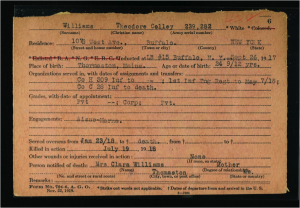 6
Williams Theodore Colley 239,283 * White * Colored.
(Surname) (Christian name) (Army serial number)
Residence: 107 East Ave., Buffalo, NEW YORK
(Street and house number) (Town or city) (County) (State)
Inducted at LB 615 Buffalo, N. Y. Sept 26 1917
Place of birth: Thomaston, Maine. Age or date of birth: 26 9/12 yrs.
Organizations served in, with dates of assignments and transfers:
Co H 309 Inf to 1st Inf Rep Regt to May 7/18;
Co C 26 Inf to death.
Grades, with date of appointment:
Pvt Corp; Pvt.
Engagements: Aisne-Marne.
Served overseas from Jan 23/18. to † death.
Killed in action July 19 1918
Other wounds or injuries received in action: None
Person notified of death: Mrs Clara Williams Mother
(Name) (Degree of relationship)
Thomaston Me
(No. and street or rural route) (City, town, or post office) (State or country)
Form No. 724-8, A. G. O. * Strike out words not applicable. † Dates of departure from and arrival in the U. S.
Nov. 22, 1919.